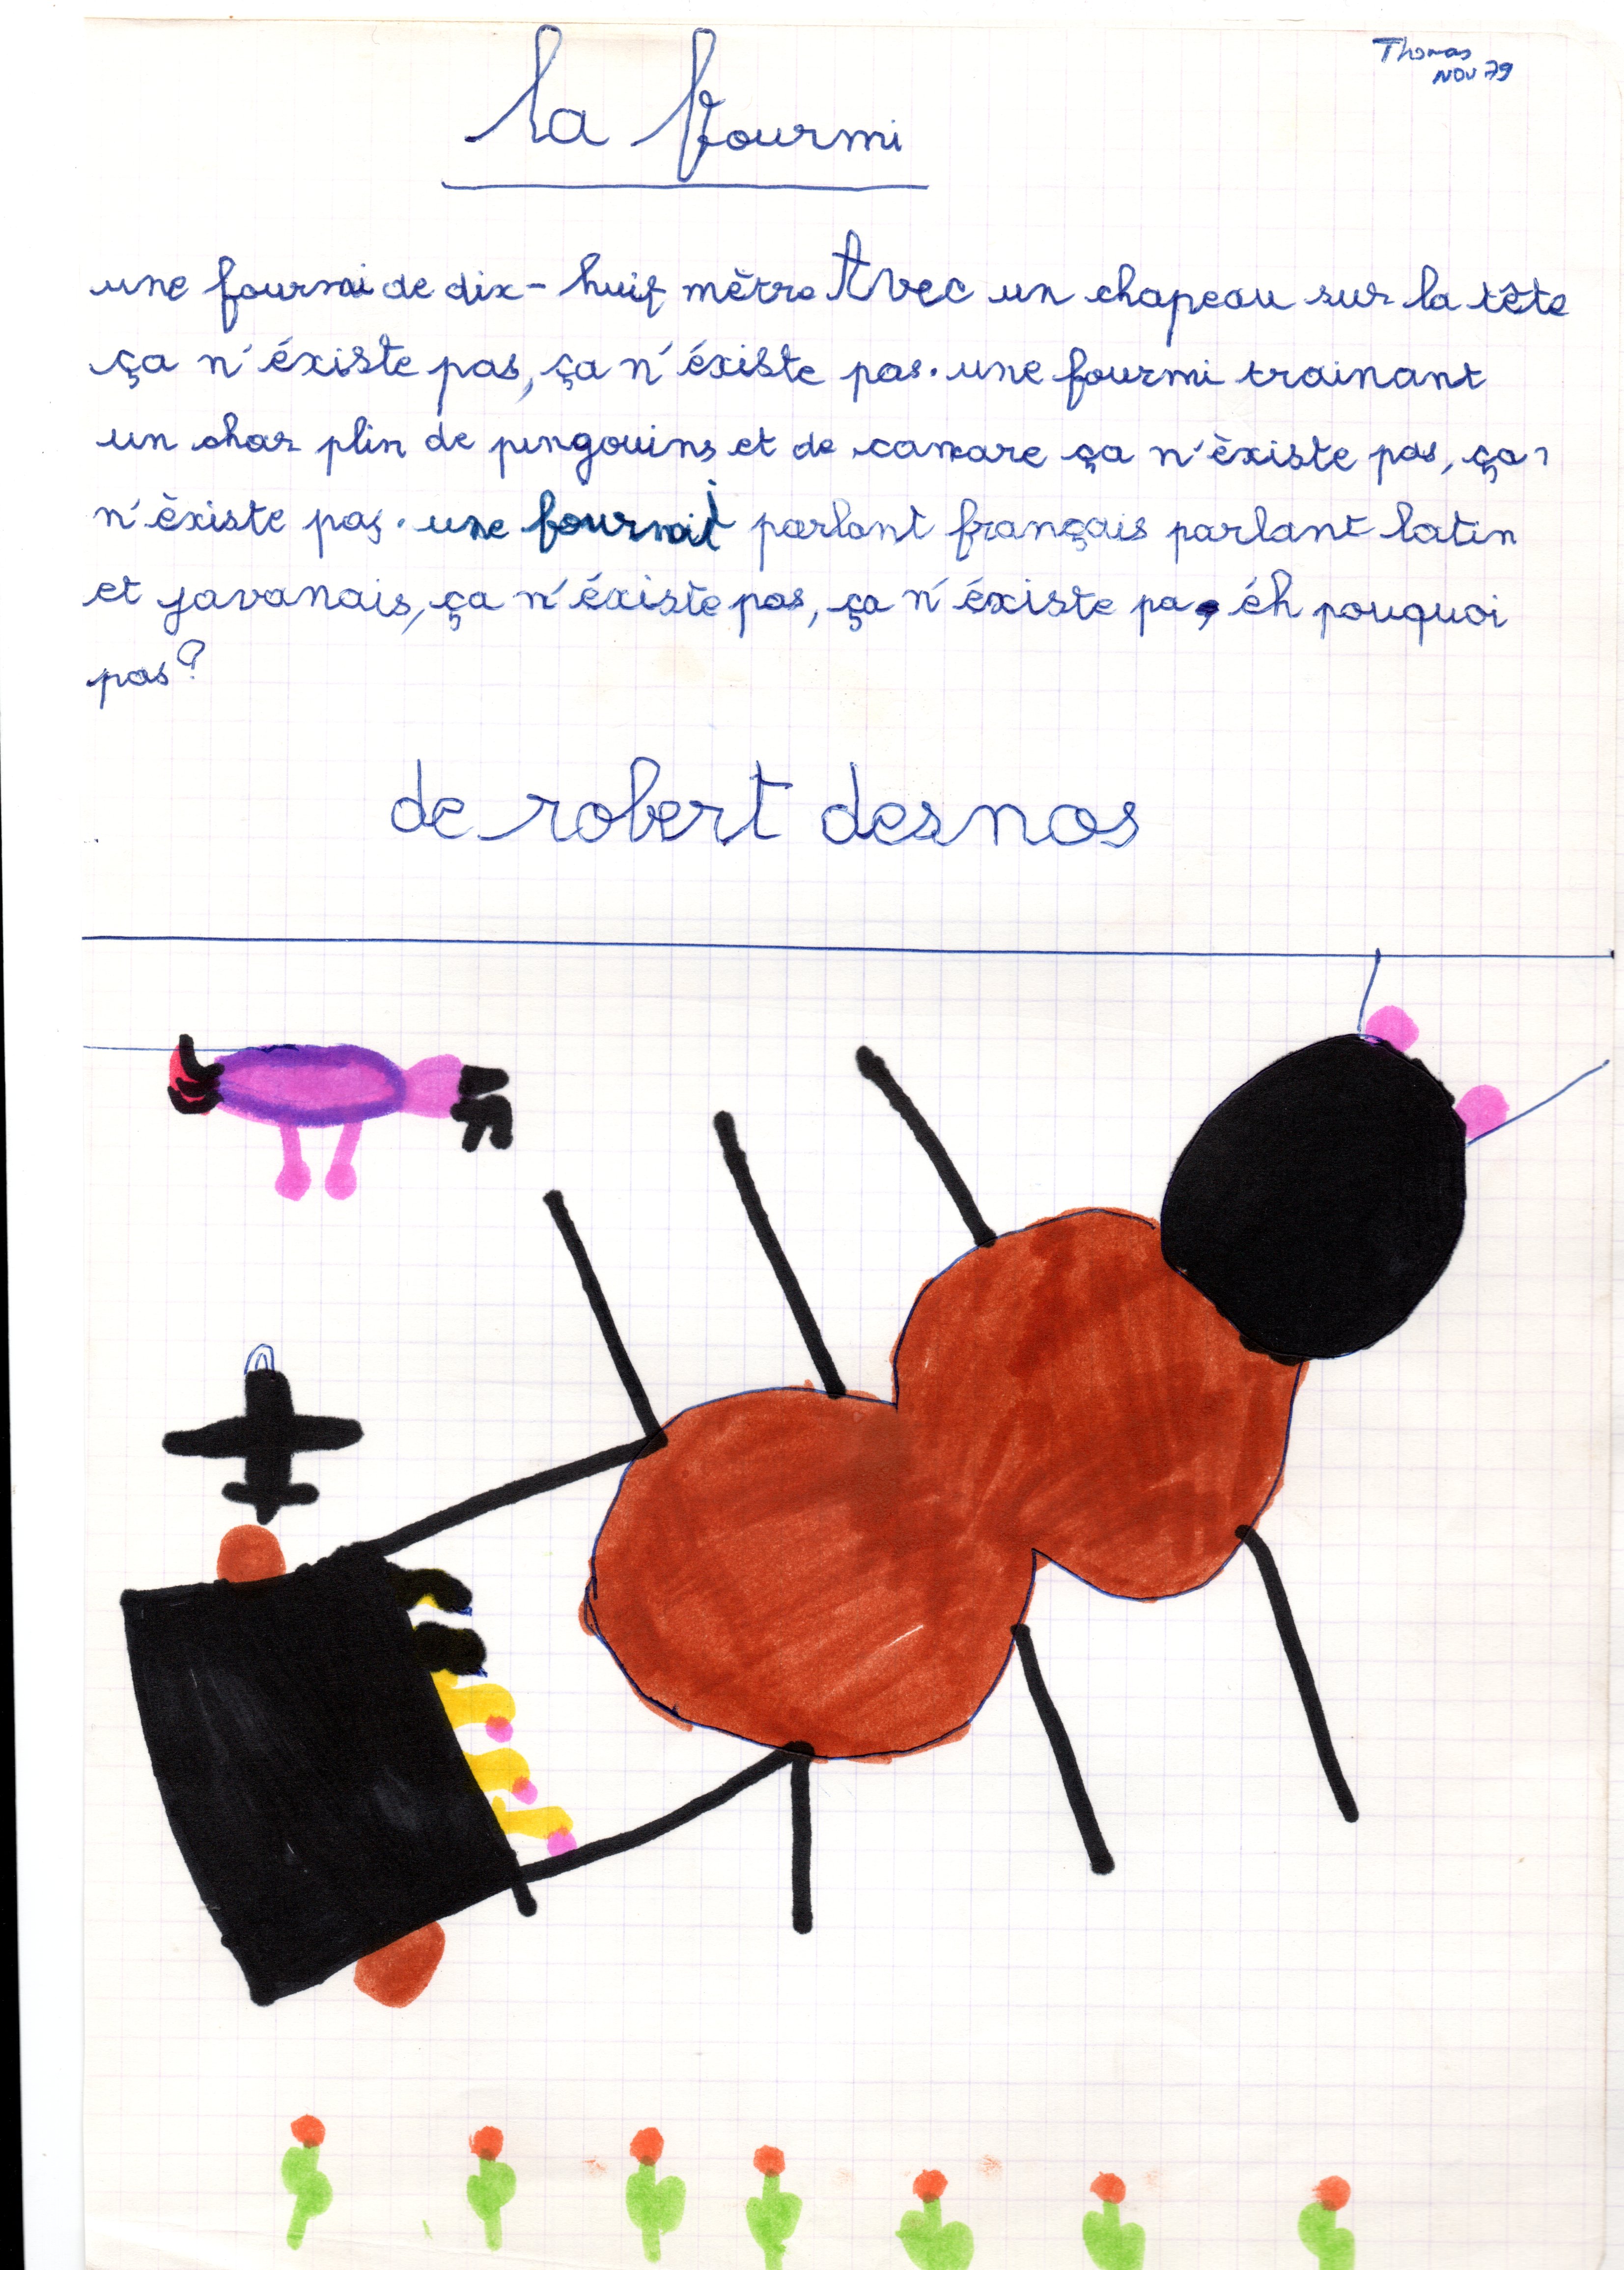 Thomas
NOV 79
la fourmi
une fourmi de dix-huit mètre Avec un chapeau sur la tête
ça n'éxiste pas, ça n'éxiste pas. une fourmi trainant
un char plin de pingouins et de canare ça n'èxiste pas, ça
n'èxiste pas. une fourmi parlant français parlant latin
et javanais, ça n'éxiste pas, ça n'éxiste pa, éh pouquoi
pas?
de robert desnos